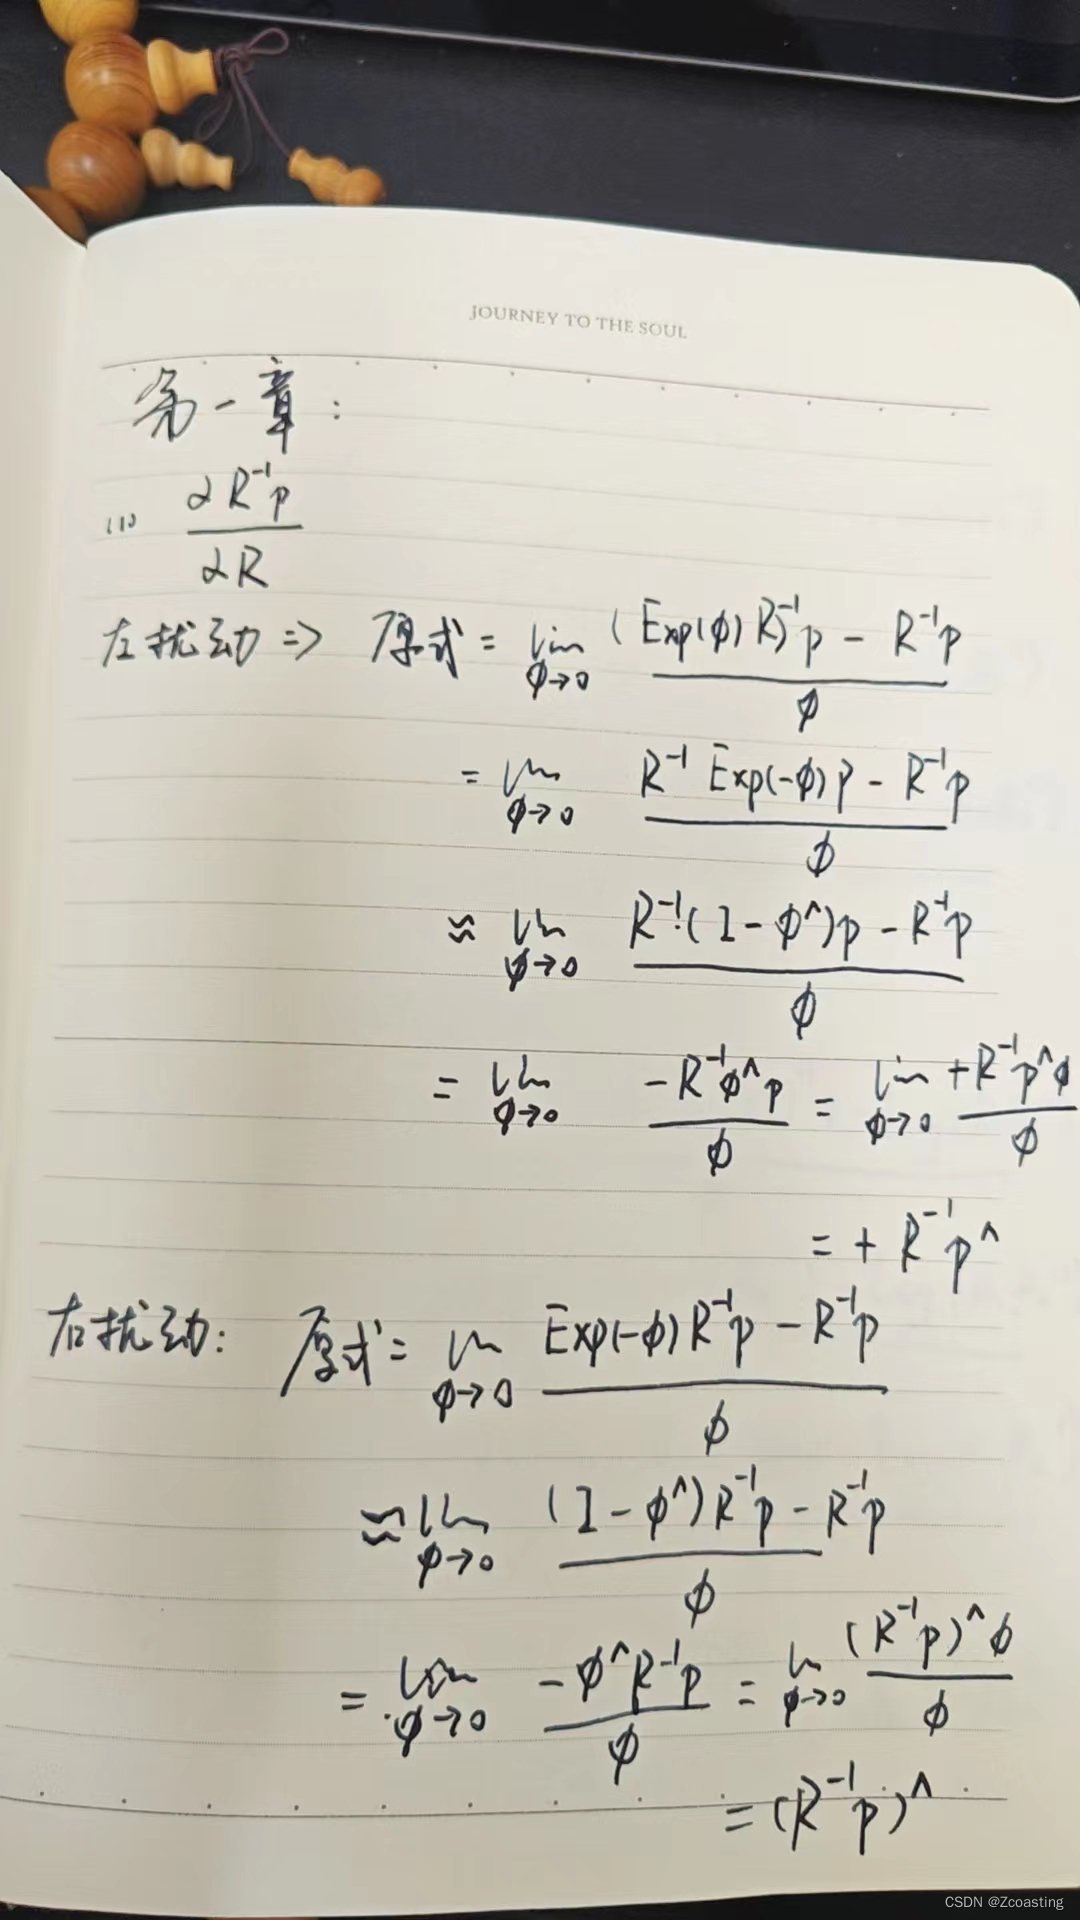 JOURNEY TO THE SOUL
第一章:
(1) ∂R⁻¹p / ∂R
左扰动 => 原式 = lim_{ϕ→0} ((Exp(ϕ)R)⁻¹p - R⁻¹p) / ϕ
= lim_{ϕ→0} (R⁻¹ Exp(-ϕ)p - R⁻¹p) / ϕ
≈ lim_{ϕ→0} (R⁻¹(I - ϕ^)p - R⁻¹p) / ϕ
= lim_{ϕ→0} -R⁻¹ϕ^p / ϕ = lim_{ϕ→0} +R⁻¹p^ϕ / ϕ
= + R⁻¹p^
右扰动: 原式 = lim_{ϕ→0} (Exp(-ϕ)R⁻¹p - R⁻¹p) / ϕ
≈ lim_{ϕ→0} ((I - ϕ^)R⁻¹p - R⁻¹p) / ϕ
= lim_{ϕ→0} -ϕ^R⁻¹p / ϕ = lim_{ϕ→0} (R⁻¹p)^ϕ / ϕ
= (R⁻¹p)^
CSDN @Zcoasting